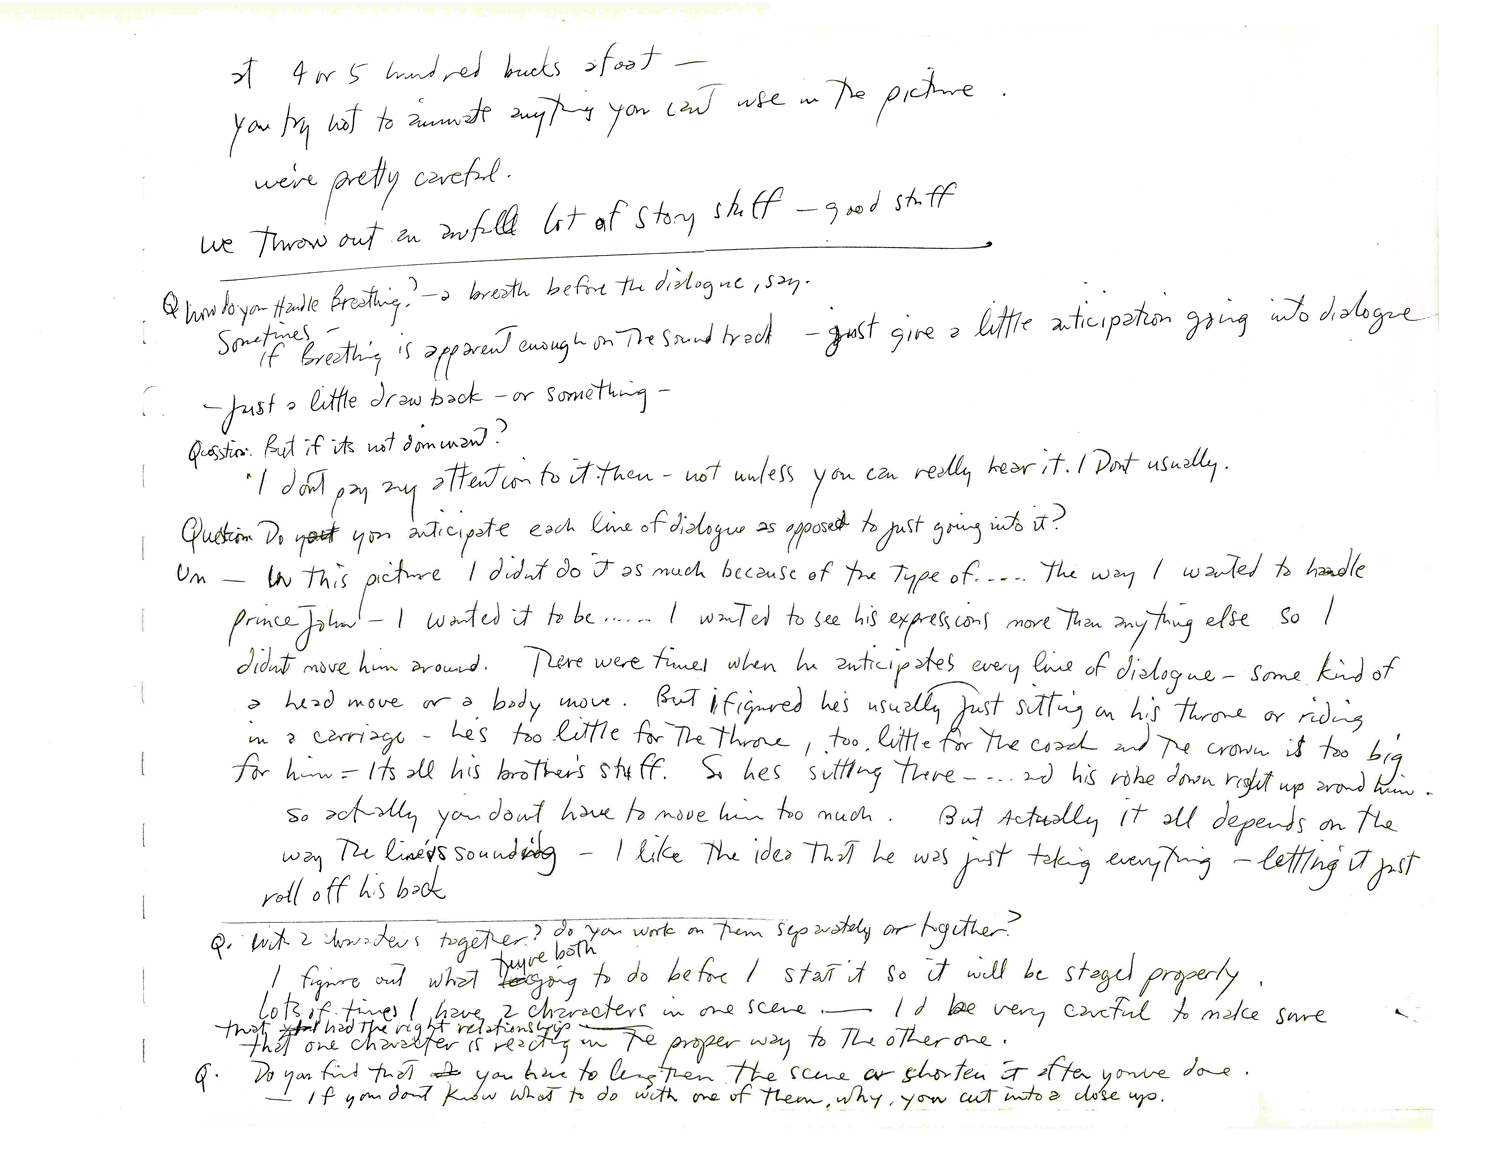 at 4 or 5 hundred bucks a foot —
you try not to animate anything you can't use in the picture .
we're pretty careful.
we throw out an awfull lot of story stuff — good stuff
Q How do you Handle Breathing? — a breath before the dialogue, say.
Sometimes —
if Breathing is apparent enough on The Sound track — just give a little anticipation going into dialogue
— Just a little draw back — or something —
Question. But if its not dominant?
"I don't pay any attention to it then — not unless you can really hear it. I Dont usually.
Question Do you anticipate each line of dialogue as opposed to just going into it?
Um — In this picture I didnt do it as much because of the Type of..... The way I wanted to handle
prince John — I wanted it to be...... I wanted to see his expressions more than anything else so I
didnt move him around. There were times when he anticipates every line of dialogue — some kind of
a head move or a body move. But I figured he's usually just sitting on his throne or riding
in a carriage — he's too little for The Throne, too little for The coach and The crown is too big
for him = Its all his brother's stuff. So hes sitting there — .... and his robe down right up around him.
So actually you dont have to move him too much. But Actually it all depends on the
way The line is sounding — I like The idea That he was just taking everything — letting it just
roll off his back
Q. With 2 characters together? do you work on them separately or together?
I figure out what they're both going to do before I start it so it will be staged properly.
Lots of times I have 2 characters in one scene — I'd be very careful to make sure
that I had The right relationship —
that one character is reacting in The proper way to The other one.
Q. Do you find that you have to lengthen The scene or shorten it after youve done.
— If you dont know what to do with one of Them, why, you cut into a close up.